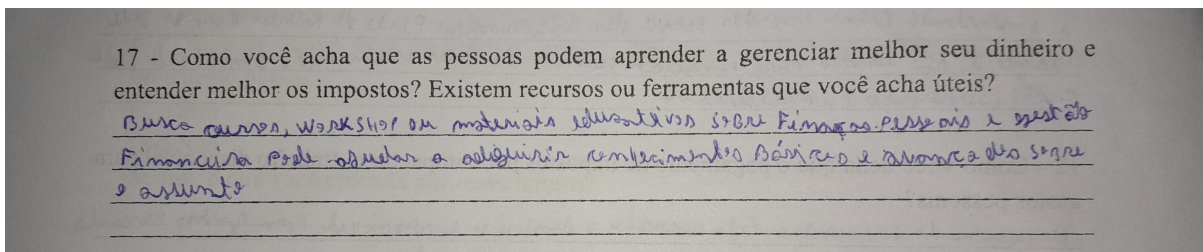 17 - Como você acha que as pessoas podem aprender a gerenciar melhor seu dinheiro e
entender melhor os impostos? Existem recursos ou ferramentas que você acha úteis?
Busca cursos, WORKSHOP ou materiais educativos sobre Finanças Pessoais e gestão
Financeira pode ajudar a adiguirir conhecimentos Básicos e avançados sobre
o assunto